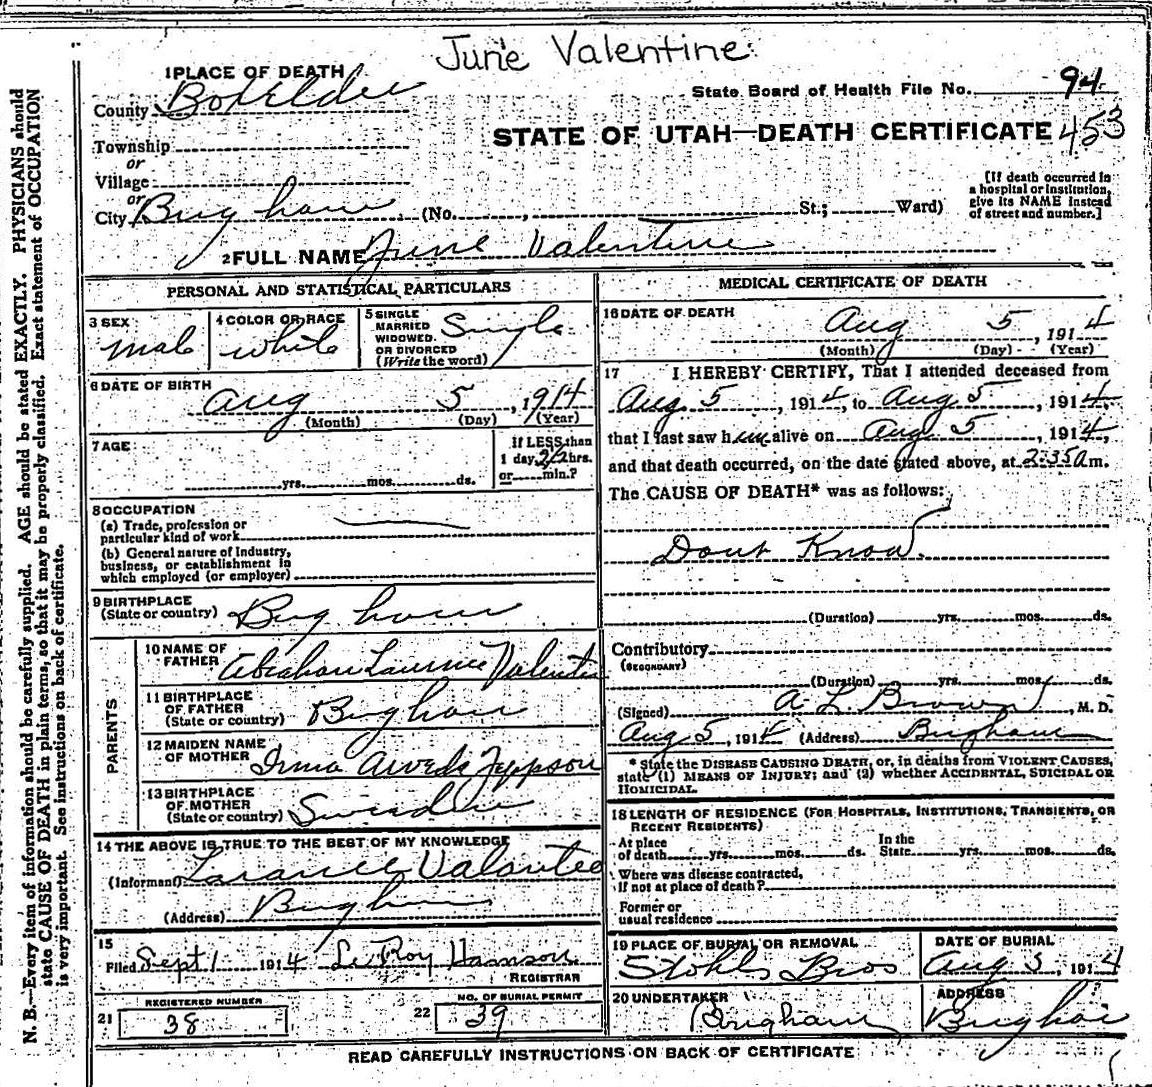 June Valentine
1 PLACE OF DEATH
County Boxelder
State Board of Health File No. 94
STATE OF UTAH—DEATH CERTIFICATE 453
Township
or
Village
or
City Brigham (No. , St.; Ward)
[If death occurred in
a hospital or institution,
give its NAME instead
of street and number.]
2 FULL NAME June Valentine
PERSONAL AND STATISTICAL PARTICULARS
3 SEX
Male
4 COLOR OR RACE
White
5 SINGLE
MARRIED
WIDOWED.
OR DIVORCED
(Write the word)
Single
6 DATE OF BIRTH
Aug 5, 1914
(Month) (Day) (Year)
7 AGE
yrs. mos. ds.
If LESS than
1 day, 2 1/2 hrs.
or min.?
8 OCCUPATION
(a) Trade, profession or
particular kind of work
(b) General nature of Industry,
business, or establishment in
which employed (or employer)
9 BIRTHPLACE
(State or country) Brigham
PARENTS
10 NAME OF
FATHER Abraham Laurence Valentine
11 BIRTHPLACE
OF FATHER
(State or country) Brigham
12 MAIDEN NAME
OF MOTHER Irma Jeppson
13 BIRTHPLACE
OF MOTHER
(State or country)
14 THE ABOVE IS TRUE TO THE BEST OF MY KNOWLEDGE
(Informant)
(Address) Brigham
15
Filed Sept 1 1914 Le Roy
REGISTRAR
REGISTERED NUMBER
21 38
NO. OF BURIAL PERMIT
22 39
MEDICAL CERTIFICATE OF DEATH
16 DATE OF DEATH
Aug 5, 1914
(Month) (Day) (Year)
17 I HEREBY CERTIFY, That I attended deceased from
Aug 5, 1914, to Aug 5, 1914,
that I last saw him alive on Aug 5, 1914,
and that death occurred, on the date stated above, at 2:35 a m.
The CAUSE OF DEATH* was as follows:
Dont Know
(Duration) yrs. mos. ds.
Contributory
(SECONDARY)
(Duration) yrs. mos. ds.
(Signed) A L Brown, M. D.
Aug 5, 1914 (Address) Brigham
* State the DISEASE CAUSING DEATH, or, in deaths from VIOLENT CAUSES,
state (1) MEANS OF INJURY; and (2) whether ACCIDENTAL, SUICIDAL OR
HOMICIDAL.
18 LENGTH OF RESIDENCE (FOR HOSPITALS, INSTITUTIONS, TRANSIENTS, OR
RECENT RESIDENTS)
At place
of death yrs. mos. ds.
In the
State yrs. mos. ds.
Where was disease contracted,
if not at place of death?
Former or
usual residence
19 PLACE OF BURIAL OR REMOVAL
Stohls Bros
DATE OF BURIAL
Aug 5, 1914
20 UNDERTAKER
Brigham
ADDRESS
Brigham
READ CAREFULLY INSTRUCTIONS ON BACK OF CERTIFICATE
N. B.—Every item of information should be carefully supplied. AGE should be stated EXACTLY. PHYSICIANS should
state CAUSE OF DEATH in plain terms, so that it may be properly classified. Exact statement of OCCUPATION
is very important. See instructions on back of certificate.